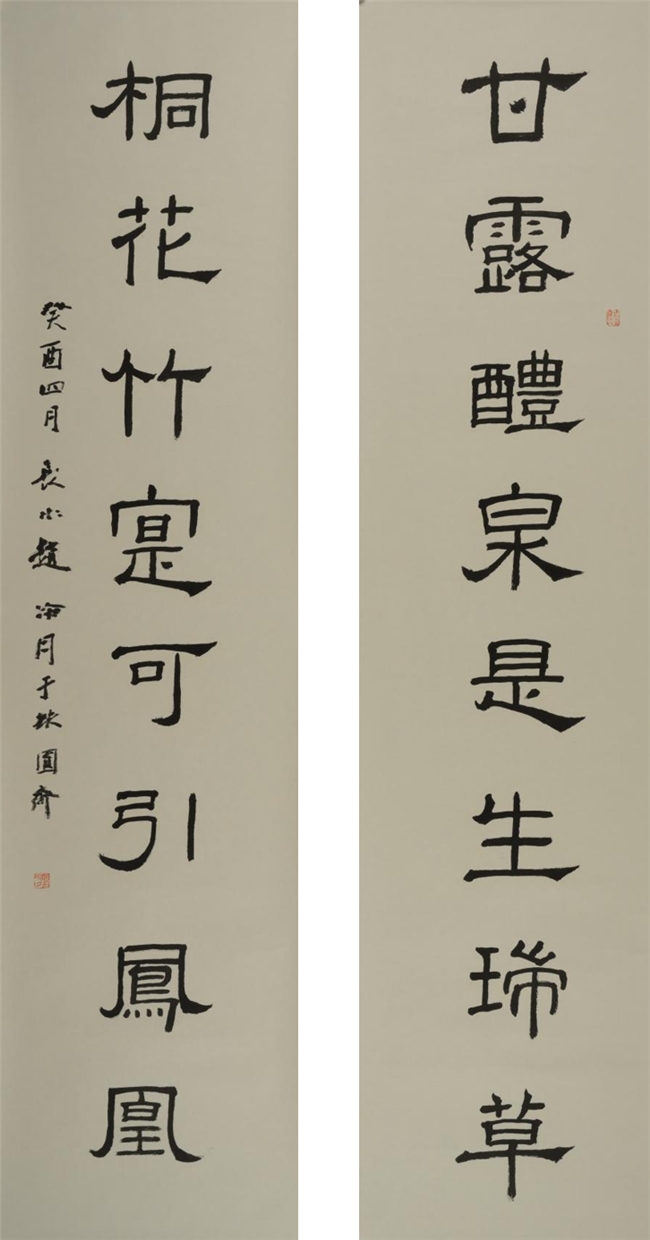 甘露醴泉是生瑞草
桐花竹寔可引鳳凰
癸酉四月長水趙冷月于缺圓齋